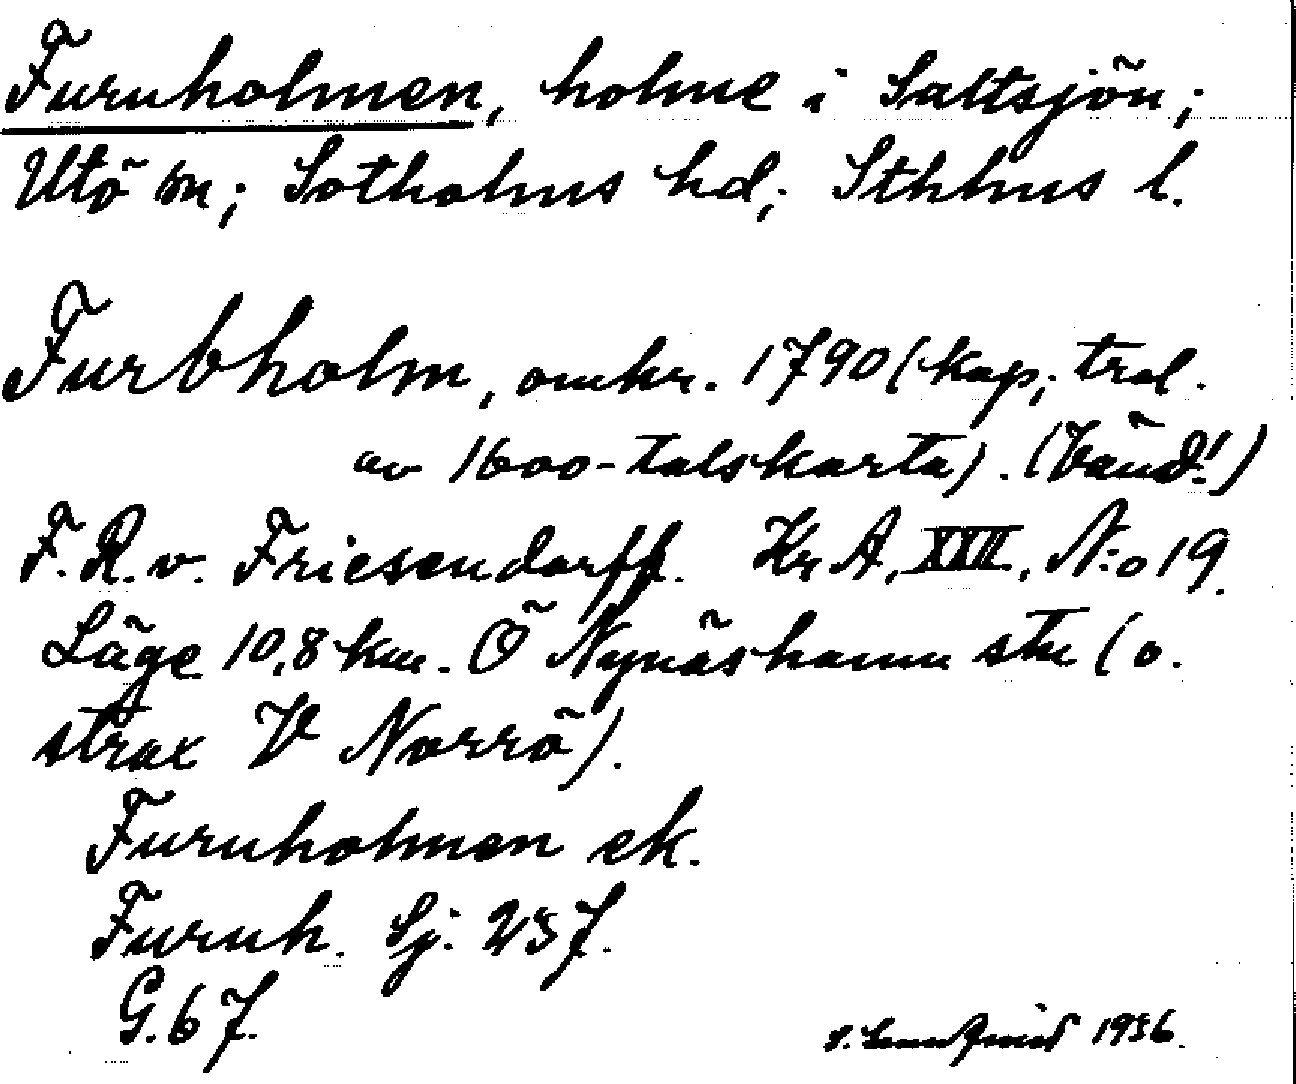 Furuholmen, holme i Saltsjön;
Utö sn; Sotholms hd; Sthlms l.
Furbholm, omkr. 1790 (kop; trol.
av 1600-talskarta). (Vänd!)
F. R. v. Friesendorff. Kr A, XXII, N:o 19.
Läge 10,8 km. Ö Nynäshamn stn (o.
strax V Norrö).
Furuholmen ek.
Furuh. Sj. 237.
G. 67.
1936.